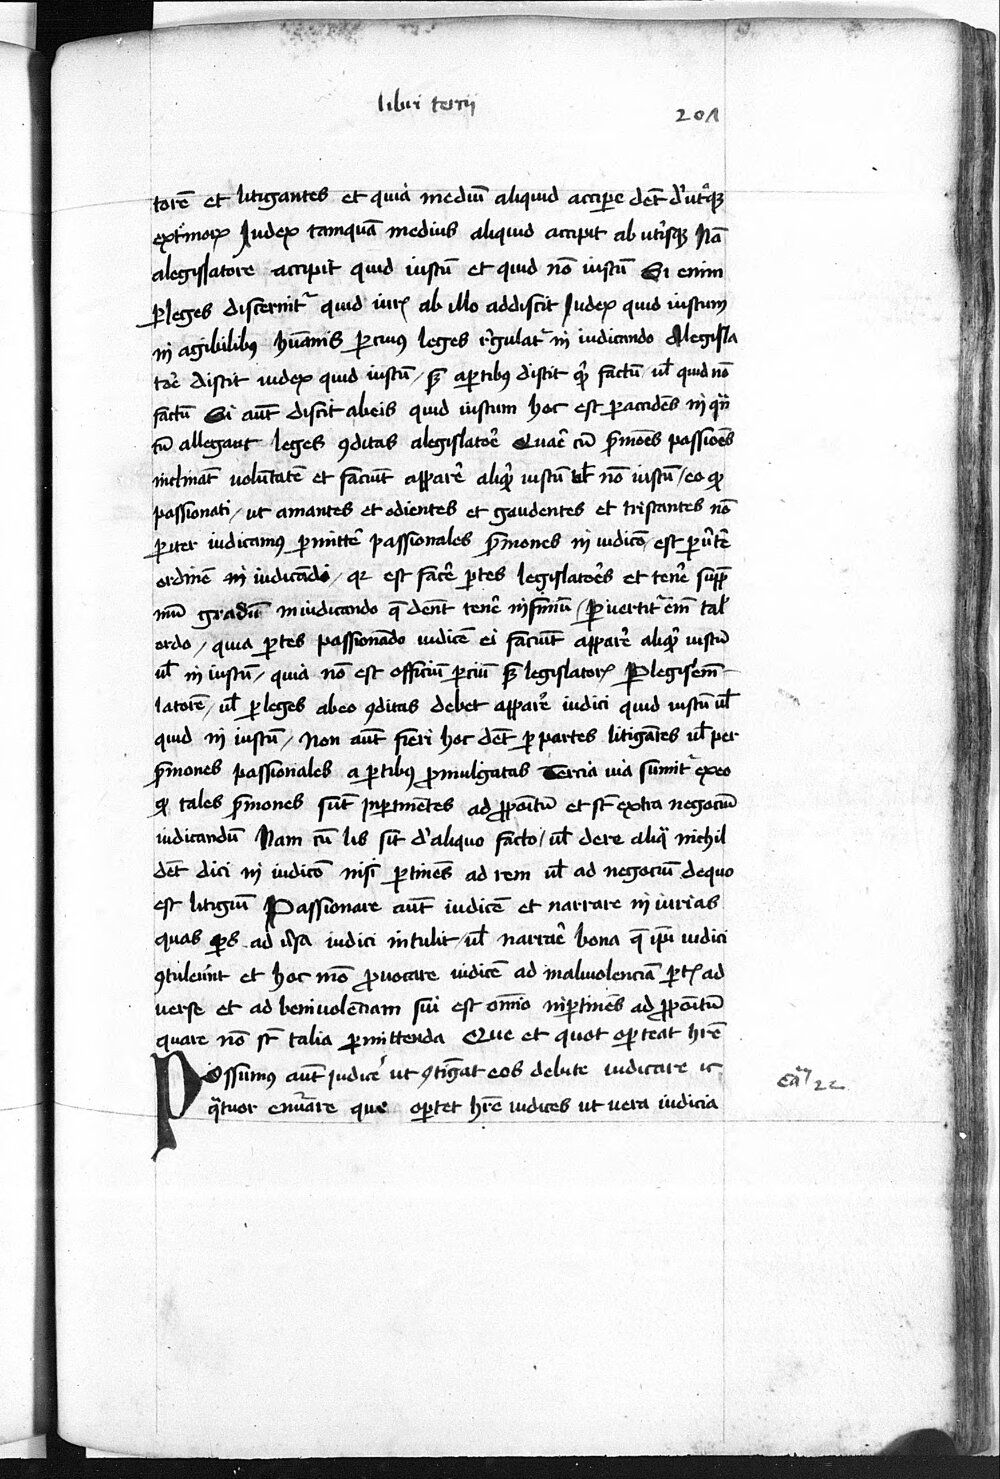 libri tercii
201
torē et litigantes et quia mediū aliquid accipe det̄ d'utq̄
extmoꝝ Judex tamquā medius aliquid accipit ab utisqꝫ Nā
alegislatore accipit quid iustū et quid nō iustū Si enim
ꝑleges discernit᷑ quid iur̄ ab illo addiscit Judex quid iustum
in agibilibꝰ hūanis ꝑcuiꝰ leges r̄gulat᷑ in iudicando Alegisla
toē discit iudex quid iustū / sꝫ aꝑtibꝰ discit qͥ factū ul̄ quid nō
factū Si aut̄ discit abeis quid iustum hoc est ꝑaccidēs in qn̄
tū allegant leges ꝯditas alegislatoē Quaē cū ẜmōes passiōēs
inclināt volūtatē et faciūt apparē aliqͥ iustū ul̄ nō iustū / eo qꝫ
passionati / ut amantes et odientes et gaudentes et tristantes nō
ꝑiter iudicamꝰ ꝑmittē passionales ẜmones in iudicō / est ꝑūtē
ordinē in iudicando / qꝛ est facē ꝑtes legislatoēs et tenē supp̄
mū gradū in iudicando q̄ den̄t tenē infimū / Puertit᷑ em̄ tal̄
ordo / quia ꝑtes passionando iudicē ei faciūt apparē aliqͥ iustū
ul̄ in iustū / quia nō est officiū ꝑciū sꝫ legislatoꝝ Plegis em̄
latorē / ul̄ ꝑleges abeo ꝯditas debet apparē iudici quid iustū ul̄
quid in iustū / Non aut̄ fieri hoc det̄ ꝑ partes litigātes ul̄ per
ẜmones passionales a ꝑtibꝰ ꝓmulgatas Tercia via sumit᷑ exeo
qꝫ tales ẜmones sūt inꝑtinētes ad ꝓpoītū et st̄ extra negociū
iudicandū Nam cū lis sit d'aliquo facto / ul̄ dere aliq̄ nichil
det̄ dici in iudicō nisi ꝑtinēs ad rem ul̄ ad negociū dequo
est litigiū Passionare aut̄ iudicē et narrare in iurias
quas ꝑs ad ūsa iudici intulit / ul̄ narraē bona q̄ ip̄i iudici
ꝯtulerūt et hoc mō ꝓvocare iudicē ad malivolenciā ꝑt̄ ad
verse et ad benivolēciam sui est om̄io inꝑtinēs ad ꝓpoītū
quare nō st̄ talia ꝑmittenda Que et quot oꝑteat hr̄e
Possumꝰ aut̄ iudicē ut ꝯtīgat eos debite iudicare ic
q̄tuor enūare que oꝑtet hr̄e iudices ut vera iudicia
ca̅m 22